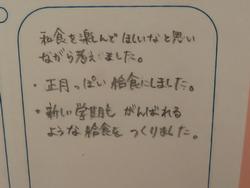 給食を楽しんでほしいなと思い
ながら考えました。
・正月っぽい給食にしました。
・新しい学期もがんばれる
ような給食をつくりました。